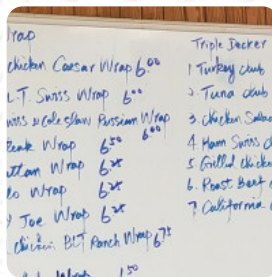 rap
chicken Caesar Wrap 6.00
L.T. Swiss Wrap 6.00
swiss & coleslaw Russian Wrap 6.00
Wrap 6.50
Wrap 6.25
Wrap 6.25
Joe Wrap 6.25
chicken BLT Ranch Wrap 6.75
Wrap 1.50
Triple Decker
1 Turkey club
2. Tuna club
3. Chicken Salad
4. Ham Swiss
5 Grilled chicke
6. Roast Beef
7 California